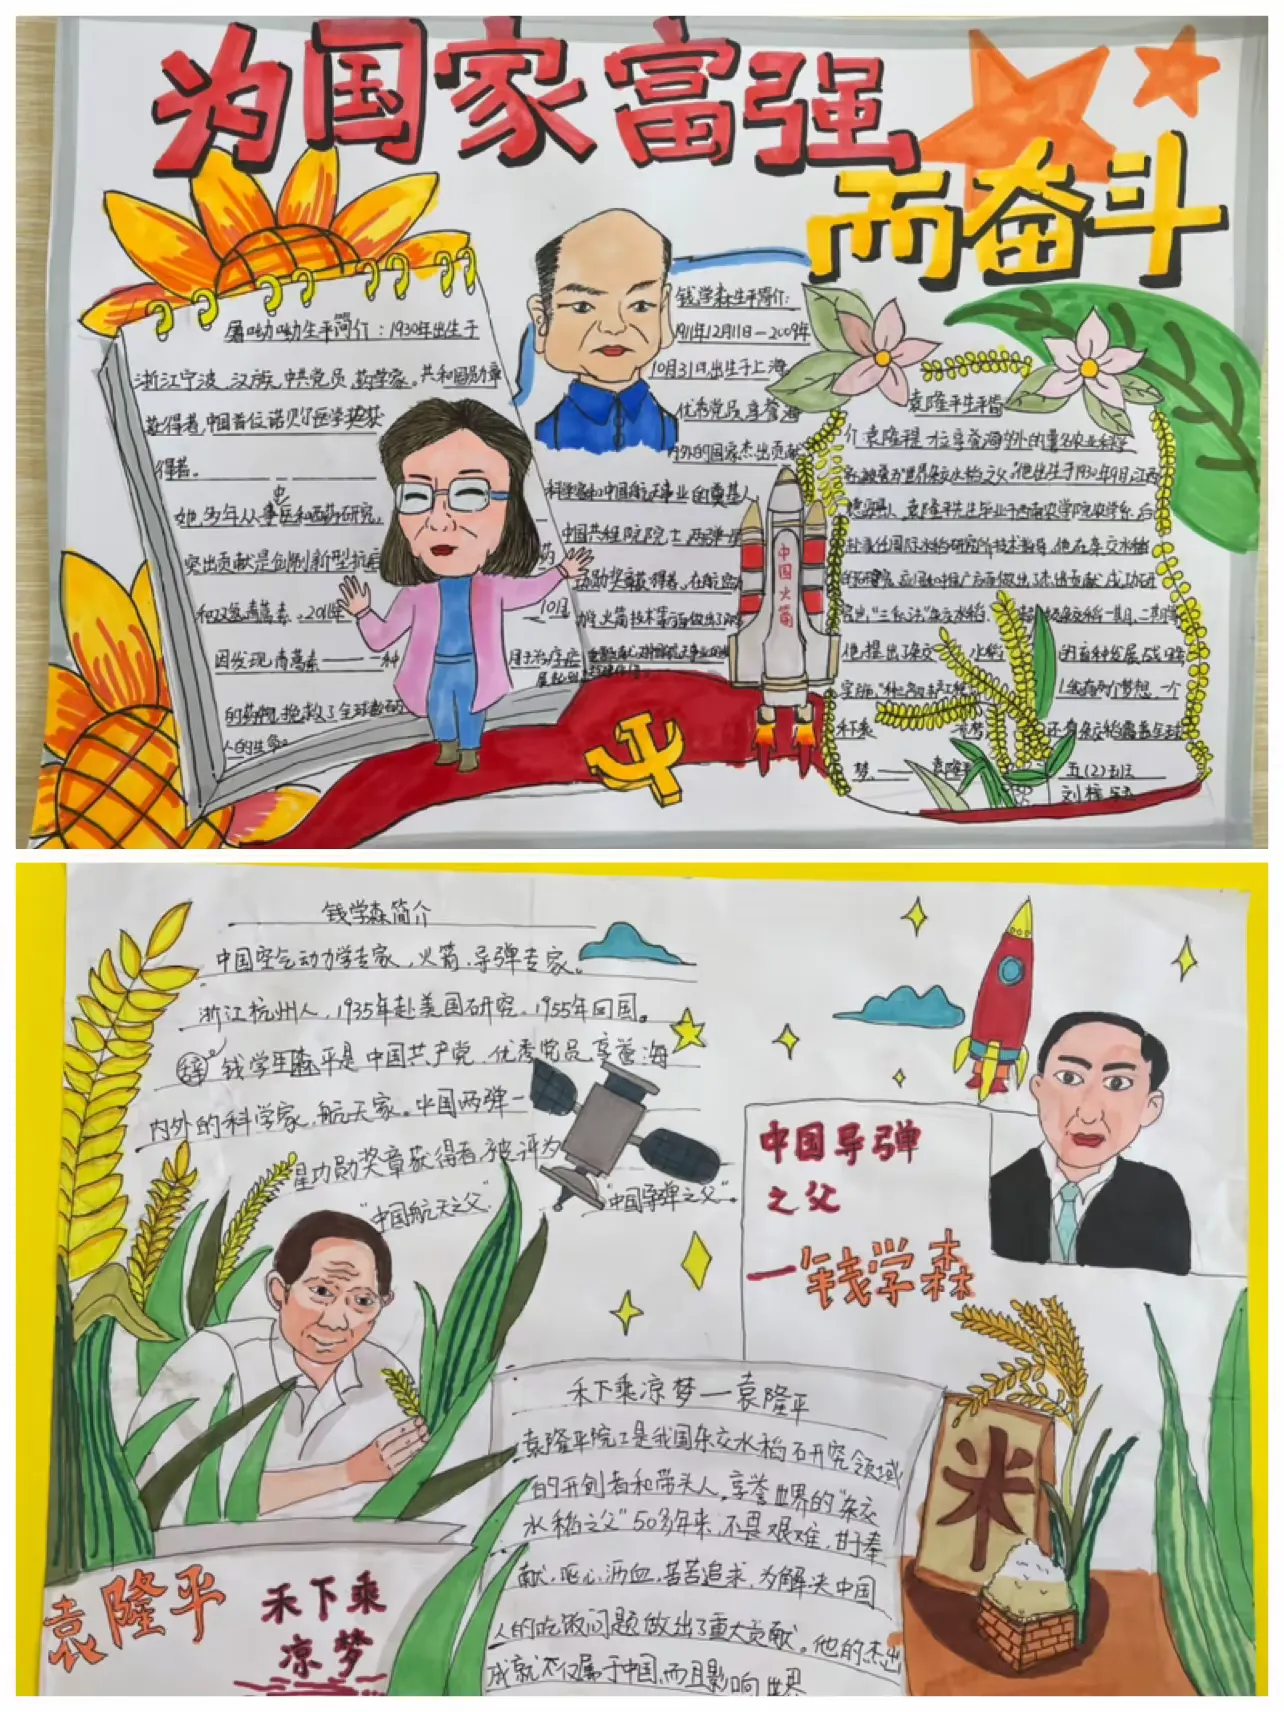 为国家富强
而奋斗
屠呦呦生平简介：1930年出生于
浙江宁波，汉族，中共党员，药学家。共和国勋章
获得者，中国首位诺贝尔医学奖获
得者。
她多年从事中医和西药研究，
突出贡献是创制新型抗疟药
和双氢青蒿素、201
10月
因发现青蒿素——一种用于治疗疟
的药物，挽救了全球数百
人的生命
钱学森生平简介：
1911年12月11日—2009年
10月31日，出生于上海
优秀党员，享誉海
内外的国家杰出贡献
科学家和中国航天事业的奠基人
中国共程院院士，两弹一
功勋奖章获得者。在航空
火箭技术等方面做出了
中国火箭
袁隆平生平简
介：袁隆平
享誉海外的著名农业科学
家，被誉为"世界杂交水稻之父"。他出生于1930年9月，江西
德安县人，袁隆平先生毕业于西南农学院农学系，后
任国际水稻研究所技术指导，他在杂交水稻
的研究、应用和推广方面做出了杰出贡献，成功研
究出"三系法"杂交水稻、
杂交水稻一期、二期
他提出了杂交水稻的育种发展战略
实施"种三产四丰产工程"
我有两个梦想，一个
禾下
还有杂交稻覆盖全球
梦。——袁隆平
五(2)班
刘
钱学森简介
中国空气动力学专家，火箭、导弹专家。
浙江杭州人，1935年赴美国研究。1955年回国。
钱学森生平是中国共产党，优秀党员，享誉海
内外的科学家，航天家。中国两弹一
星功勋奖章获得者，被评为
"中国航天之父"
"中国导弹之父"。
中国导弹
之父
—钱学森
禾下乘凉梦—袁隆平
袁隆平院士是我国杂交水稻研究领域
的开创者和带头人，享誉世界的"杂交
水稻之父"50多年来，不畏艰难，甘于奉
献，呕心沥血，苦苦追求，为解决中国
人的吃饭问题做出了重大贡献。他的杰出
成就不仅属于中国，而且影响世界
米
袁隆平
禾下乘
凉梦